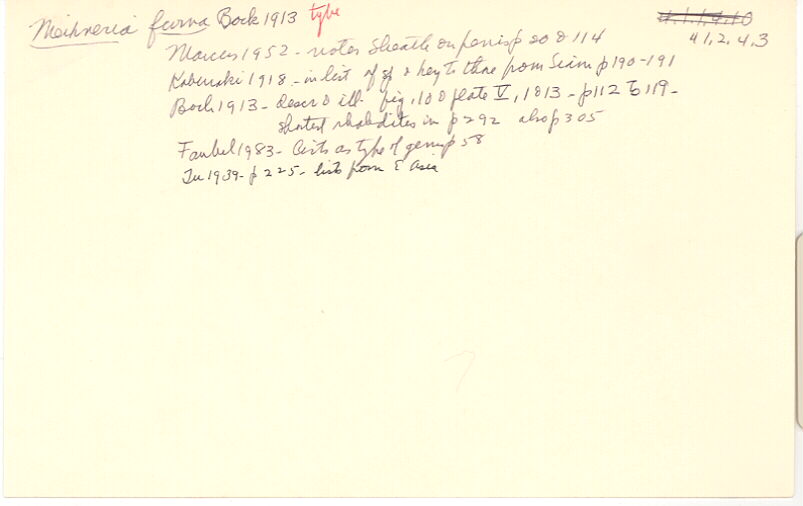 Meixneria furva Bock 1913 type
4.1.1.9.10
4 1, 2, 4, 3
Marcus 1952 - notes sheath on penis p 20 & 114
1918 - in list of & key to those from p 190-191
Bock 1913 - descr & ill. fig. 10 & plate V, 1 & 3 - p 112 to 119 -
rhabdites in p 292 also p 305
Faubel 1983 - lists as type of genus p 58
Tu 1939 - p 225 - lists from E Asia